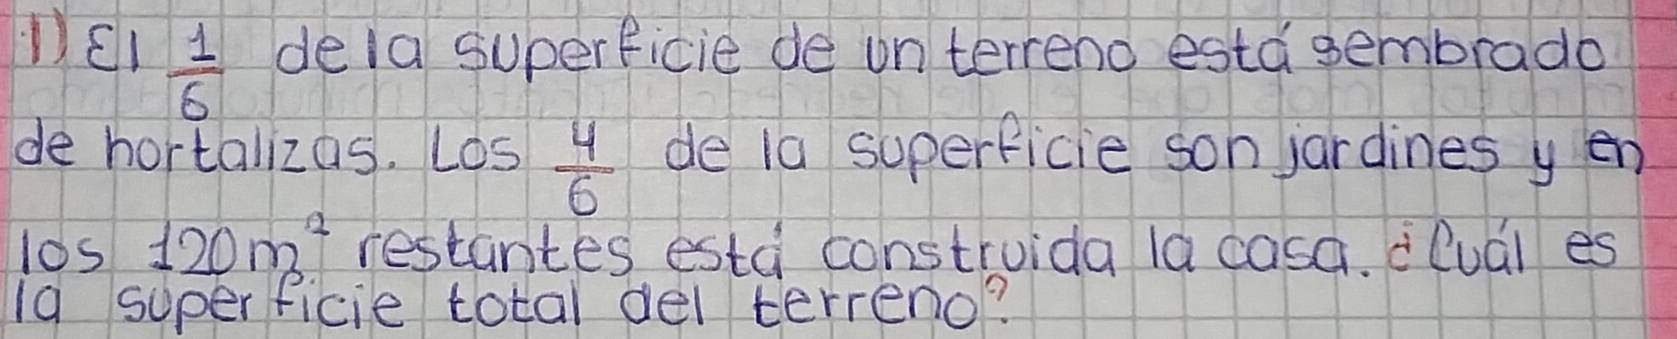 1) El 1/6 de la superficie de un terreno está sembrado
de hortalizas. Los 4/6 de la superficie son jardines y en
los 120 m² restantes está construida la casa. ¿Cuál es
la superficie total del terreno?